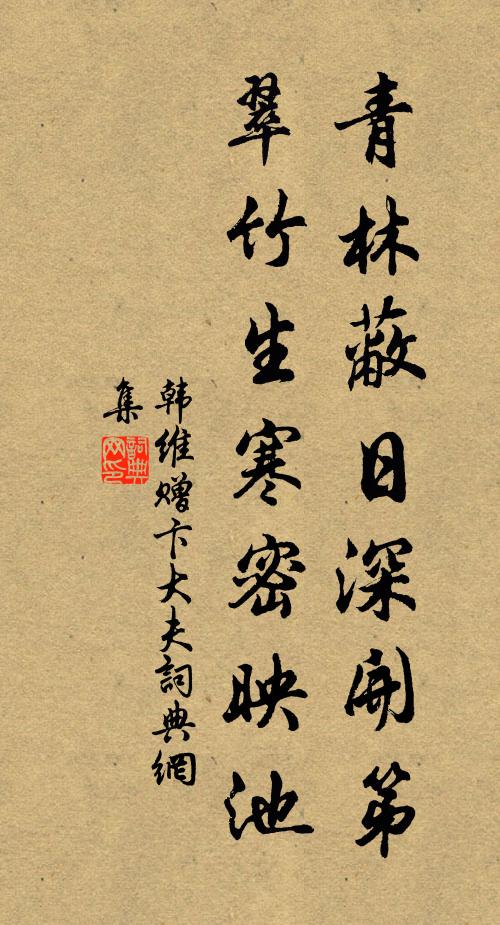 青林蔽日深開第
翠竹生寒密映池
韩维赠卞大夫詞典網
集
詞典
网印